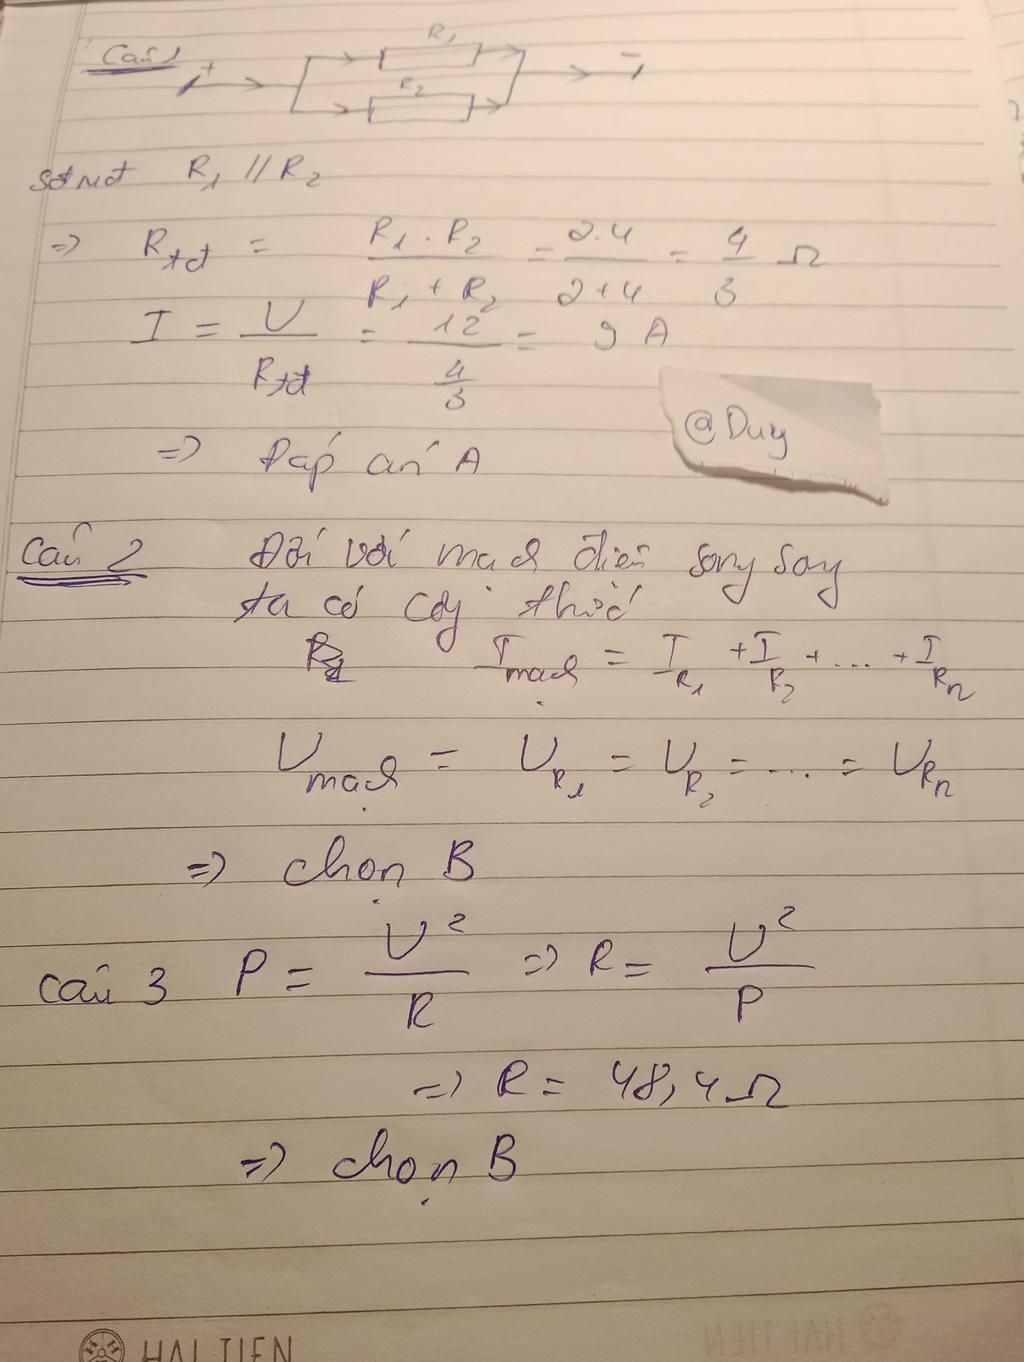 Câu 1
+ R1 -
R2
Sơ đồ mđ R1 // R2
=> Rtđ = R1 . R2 / R1 + R2 = 2.4 / 2+4 = 4/3 Ω
I = U / Rtđ = 12 / 4/3 = 9 A
@Duy
=> Đáp án A
Câu 2 Đối với mạch điện song song
ta có công thức
Imạch = IR1 + IR2 + ... + IRn
Umạch = UR1 = UR2 = .... = URn
=> chọn B
Câu 3 P = U² / R => R = U² / P
=> R = 48,4 Ω
=> chọn B
HẢI TIẾN